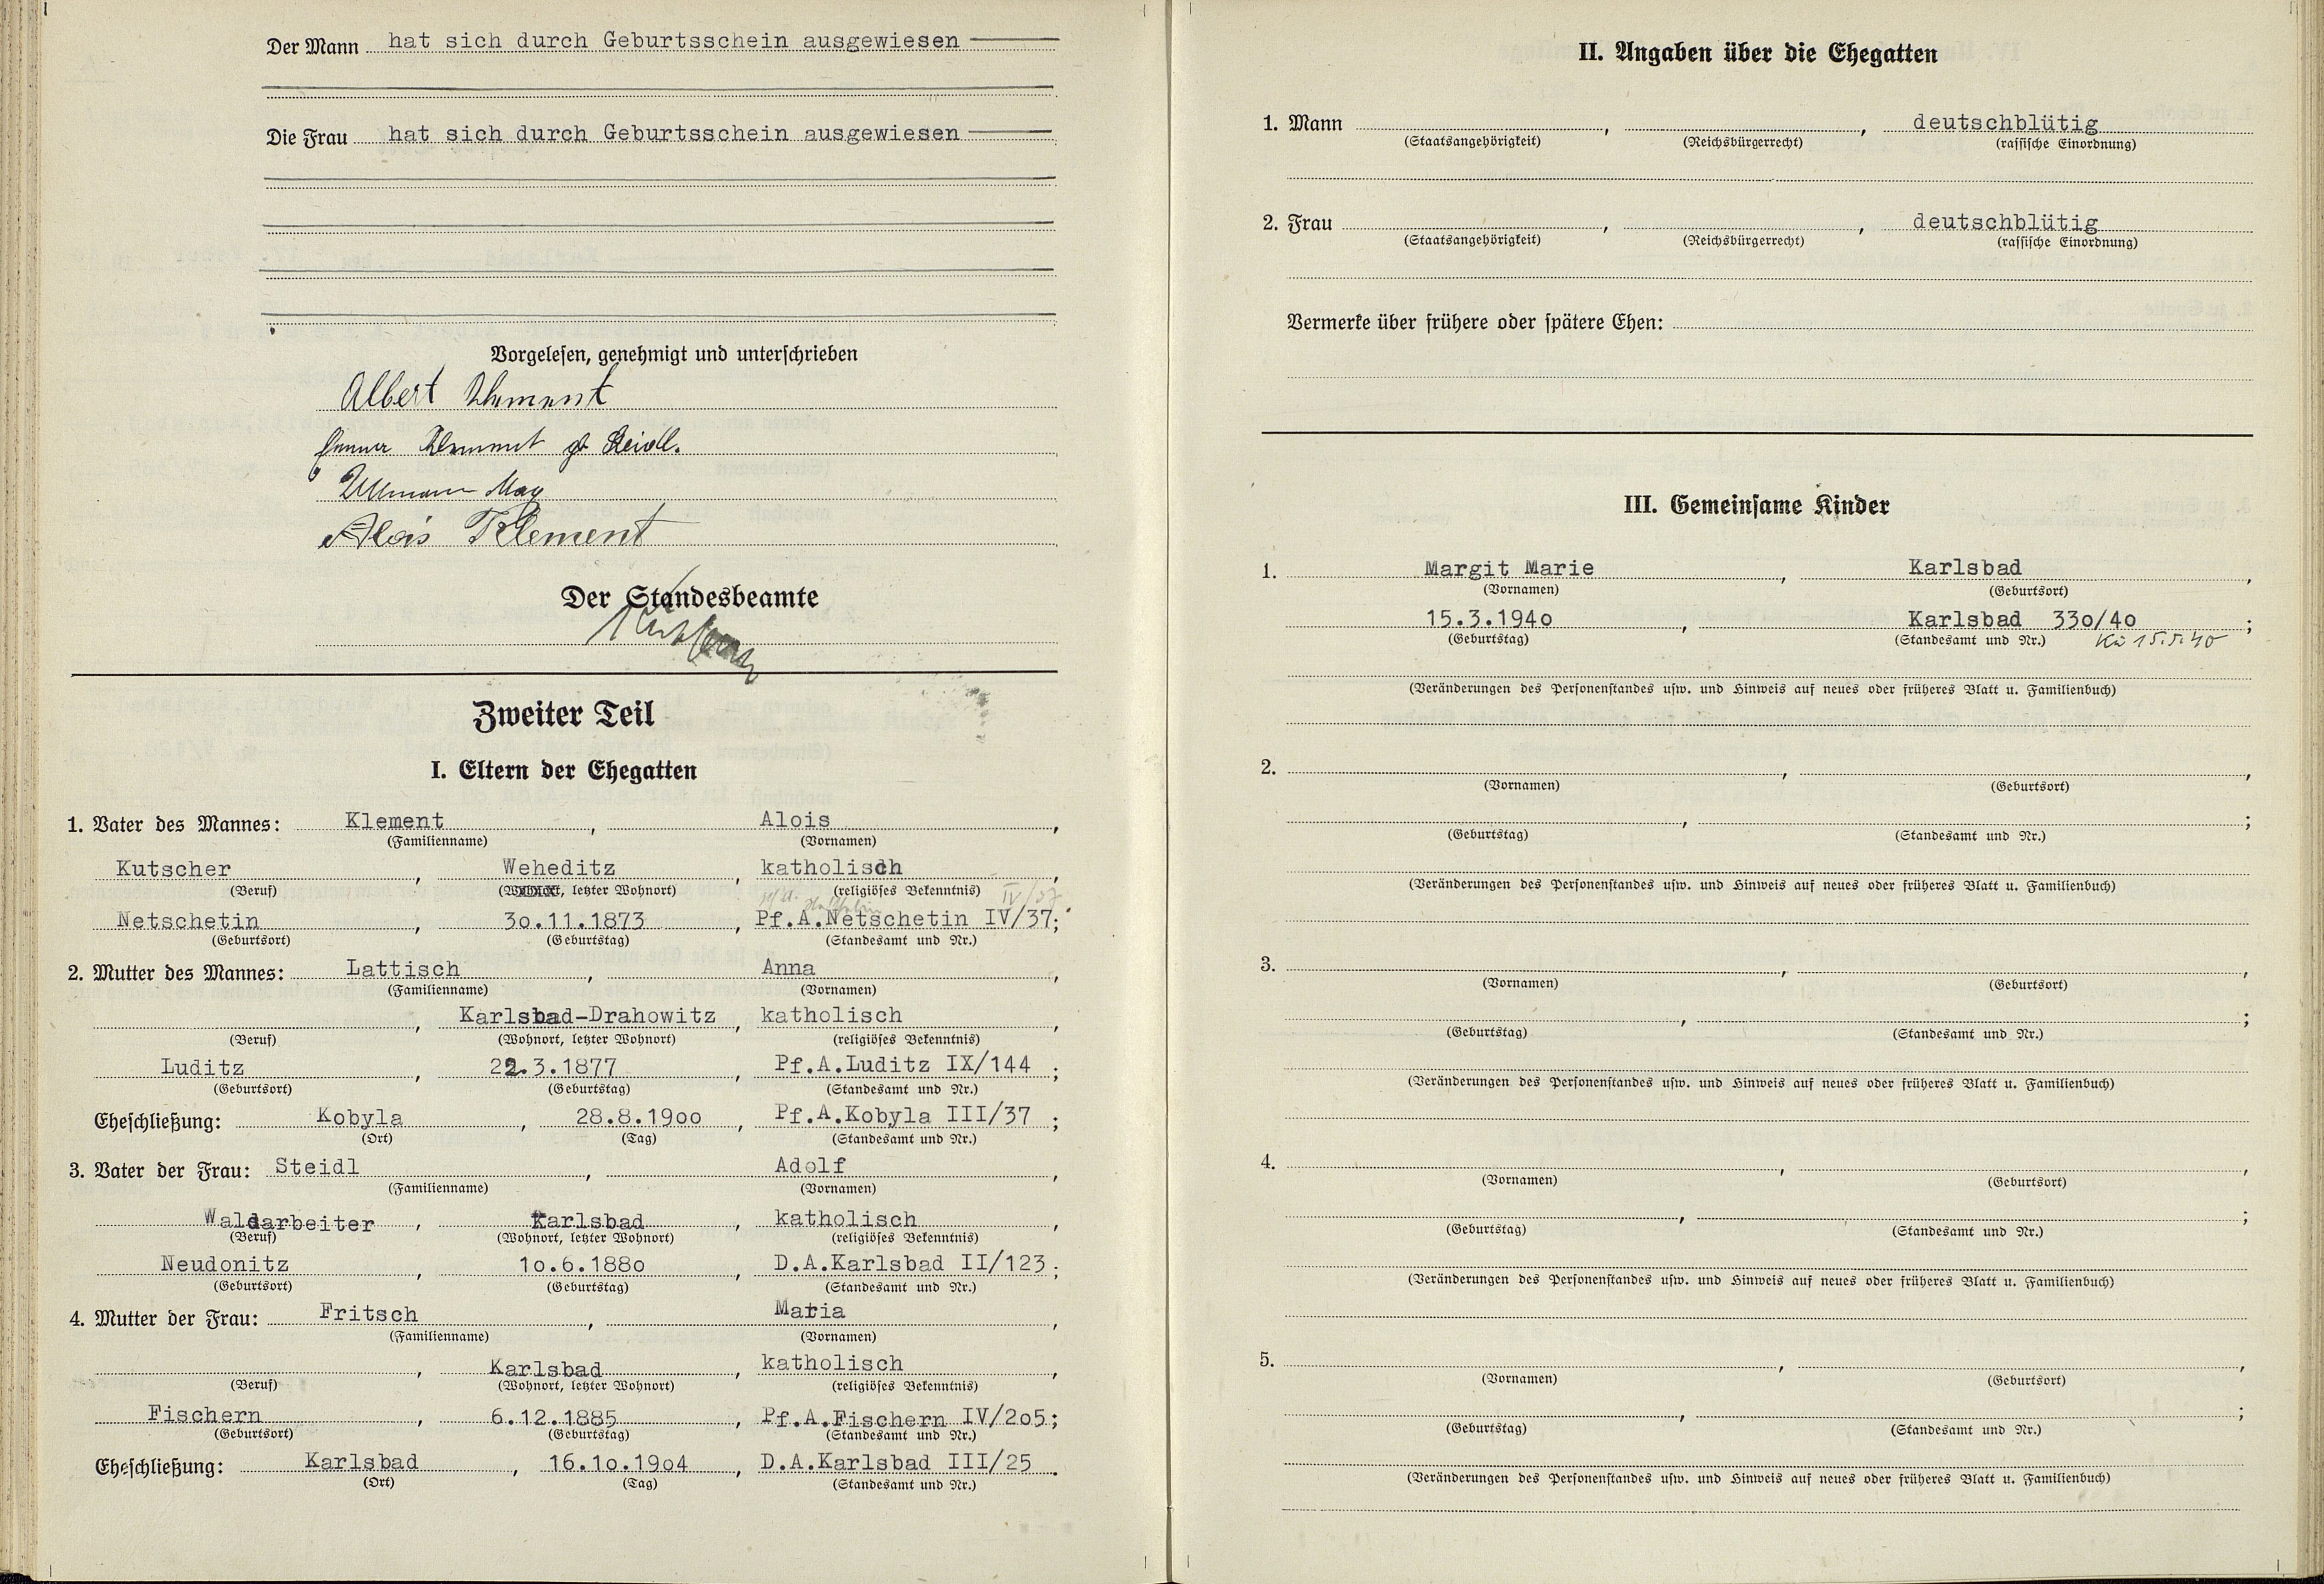 Der Mann hat sich durch Geburtsschein ausgewiesen
Die Frau hat sich durch Geburtsschein ausgewiesen
Vorgelesen, genehmigt und unterschrieben
Albert Klement
Klement Steidl.
Ullmann
Alois Klement
Der Standesbeamte
Zweiter Teil
I. Eltern der Ehegatten
1. Vater des Mannes: Klement, Alois,
(Familienname) (Vornamen)
Kutscher, Weheditz, katholisch,
(Beruf) (letzter Wohnort) (religiöses Bekenntnis) IV/37
Netschetin, 30.11.1873, Pf.A.Netschetin IV/37;
(Geburtsort) (Geburtstag) (Standesamt und Nr.)
2. Mutter des Mannes: Lattisch, Anna,
(Familienname) (Vornamen)
, Karlsbad-Drahowitz, katholisch,
(Beruf) (Wohnort, letzter Wohnort) (religiöses Bekenntnis)
Luditz, 22.3.1877, Pf.A.Luditz IX/144;
(Geburtsort) (Geburtstag) (Standesamt und Nr.)
Eheschließung: Kobyla, 28.8.1900, Pf.A.Kobyla III/37;
(Ort) (Tag) (Standesamt und Nr.)
3. Vater der Frau: Steidl, Adolf,
(Familienname) (Vornamen)
Waldarbeiter, Karlsbad, katholisch,
(Beruf) (Wohnort, letzter Wohnort) (religiöses Bekenntnis)
Neudonitz, 10.6.1880, D.A.Karlsbad II/123;
(Geburtsort) (Geburtstag) (Standesamt und Nr.)
4. Mutter der Frau: Fritsch, Maria,
(Familienname) (Vornamen)
, Karlsbad, katholisch,
(Beruf) (Wohnort, letzter Wohnort) (religiöses Bekenntnis)
Fischern, 6.12.1885, Pf.A.Fischern IV/205;
(Geburtsort) (Geburtstag) (Standesamt und Nr.)
Eheschließung: Karlsbad, 16.10.1904, D.A.Karlsbad III/25.
(Ort) (Tag) (Standesamt und Nr.)
II. Angaben über die Ehegatten
1. Mann , , deutschblütig
(Staatsangehörigkeit) (Reichsbürgerrecht) (rassische Einordnung)
2. Frau , , deutschblütig
(Staatsangehörigkeit) (Reichsbürgerrecht) (rassische Einordnung)
Vermerke über frühere oder spätere Ehen:
III. Gemeinsame Kinder
1. Margit Marie, Karlsbad,
(Vornamen) (Geburtsort)
15.3.1940, Karlsbad 330/40;
(Geburtstag) (Standesamt und Nr.) 15.5.40
(Veränderungen des Personenstandes usw. und Hinweis auf neues oder früheres Blatt u. Familienbuch)
2. , ,
(Vornamen) (Geburtsort)
, ;
(Geburtstag) (Standesamt und Nr.)
(Veränderungen des Personenstandes usw. und Hinweis auf neues oder früheres Blatt u. Familienbuch)
3. , ,
(Vornamen) (Geburtsort)
, ;
(Geburtstag) (Standesamt und Nr.)
(Veränderungen des Personenstandes usw. und Hinweis auf neues oder früheres Blatt u. Familienbuch)
4. , ,
(Vornamen) (Geburtsort)
, ;
(Geburtstag) (Standesamt und Nr.)
(Veränderungen des Personenstandes usw. und Hinweis auf neues oder früheres Blatt u. Familienbuch)
5. , ,
(Vornamen) (Geburtsort)
, ;
(Geburtstag) (Standesamt und Nr.)
(Veränderungen des Personenstandes usw. und Hinweis auf neues oder früheres Blatt u. Familienbuch)